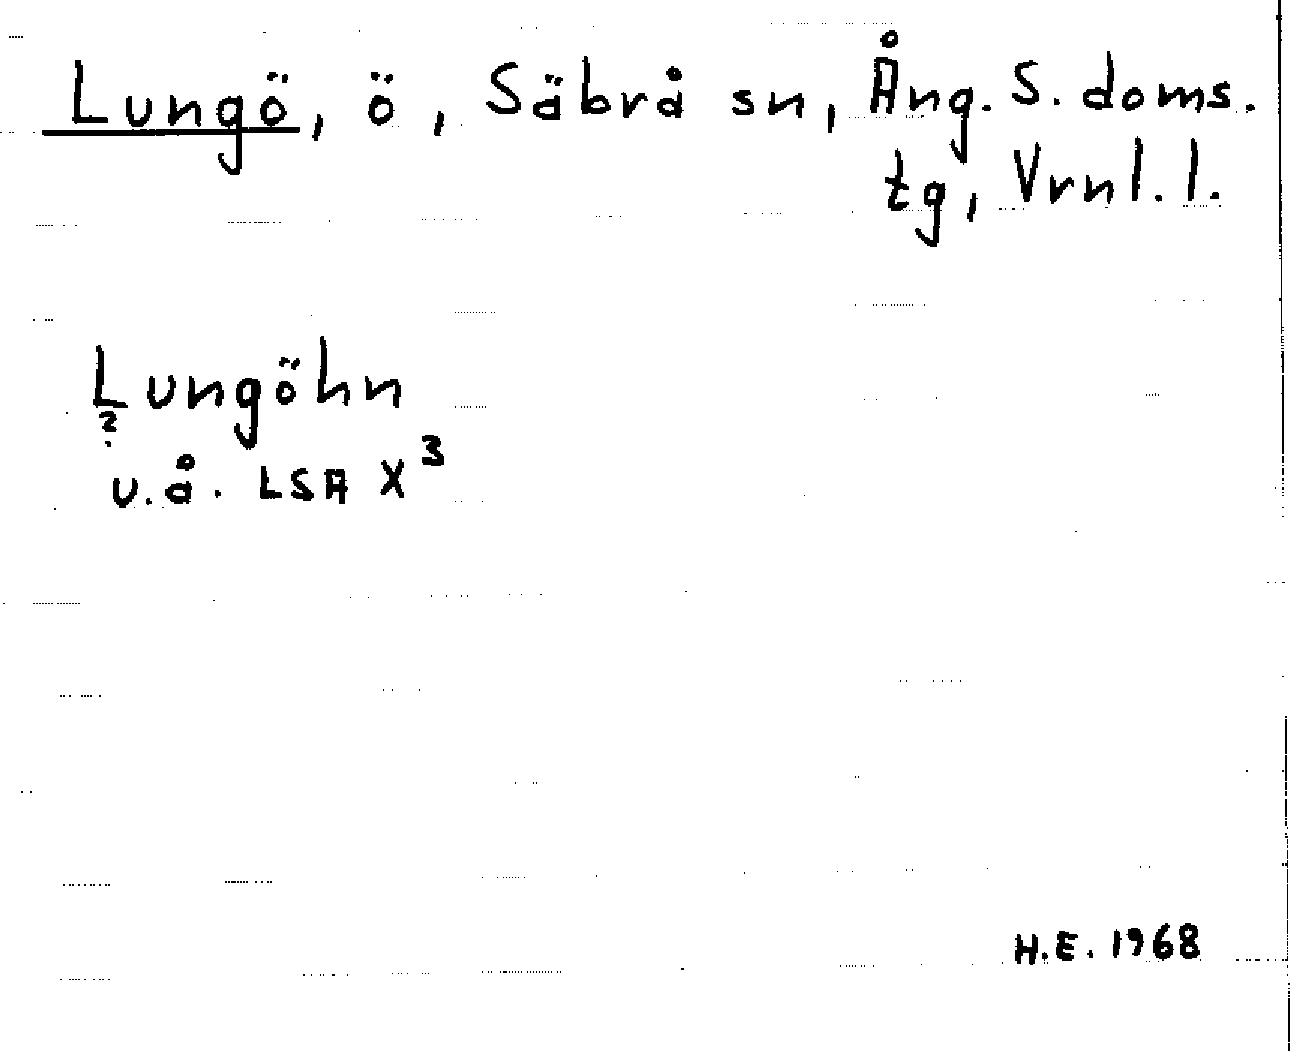 Lungö, ö, Säbrå sn, Ång. S. doms.
tg, Vrnl. l.
Lungöhn
?
u.å. LSA X³
H.E. 1968